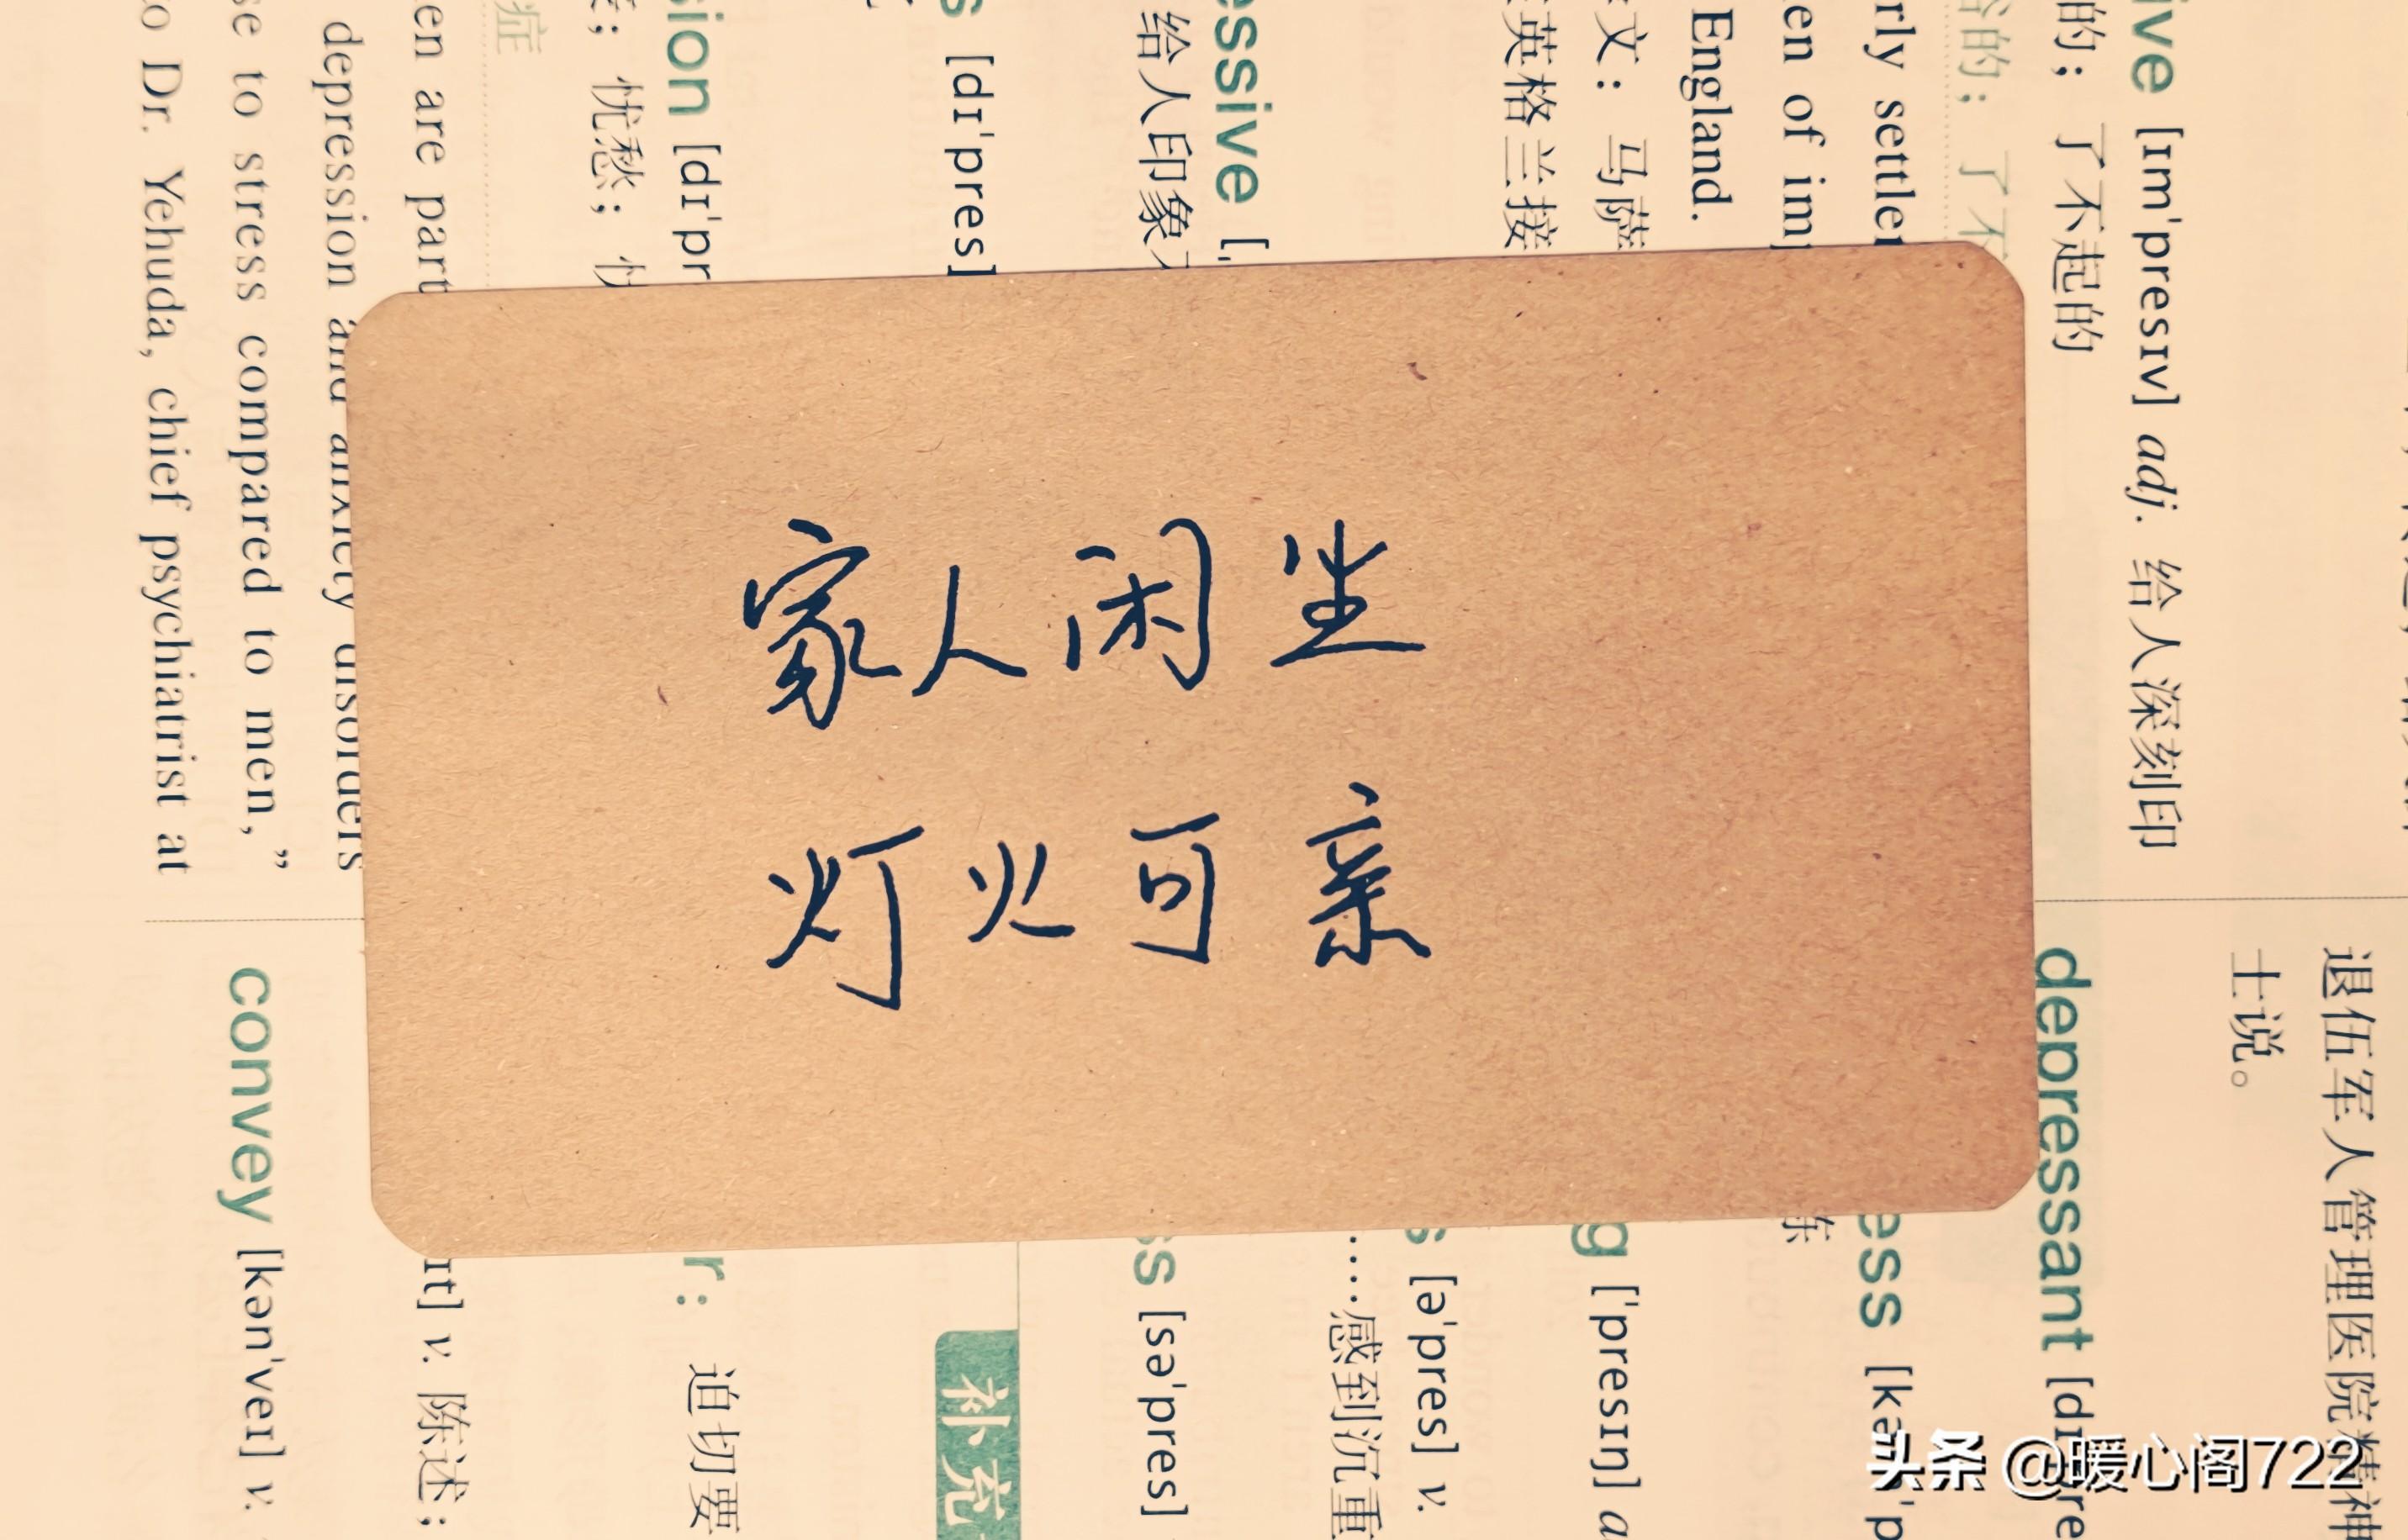 家人闲坐
灯火可亲
ive [ɪmˈpresɪv] adj. 给人深刻印
的；了不起的
rly settler
en of imp
England.
文：马萨
英格兰接
essive [ˌ
给人印象
s [dɪˈpres]
sion [dɪˈpr
忧愁；忧
症
en are part
depression and anxiety disorders
se to stress compared to men,”
to Dr. Yehuda, chief psychiatrist at
退伍军人管理医院精神
士说。
depressant [dɪˈpre
ess [kəmˈp
g [ˈpresɪŋ] a
s [əˈpres] v.
……感到沉重
ss [səˈpres]
补充
r：迫切要
ɪt] v. 陈述；
convey [kənˈveɪ] v.
头条 @暖心阁722